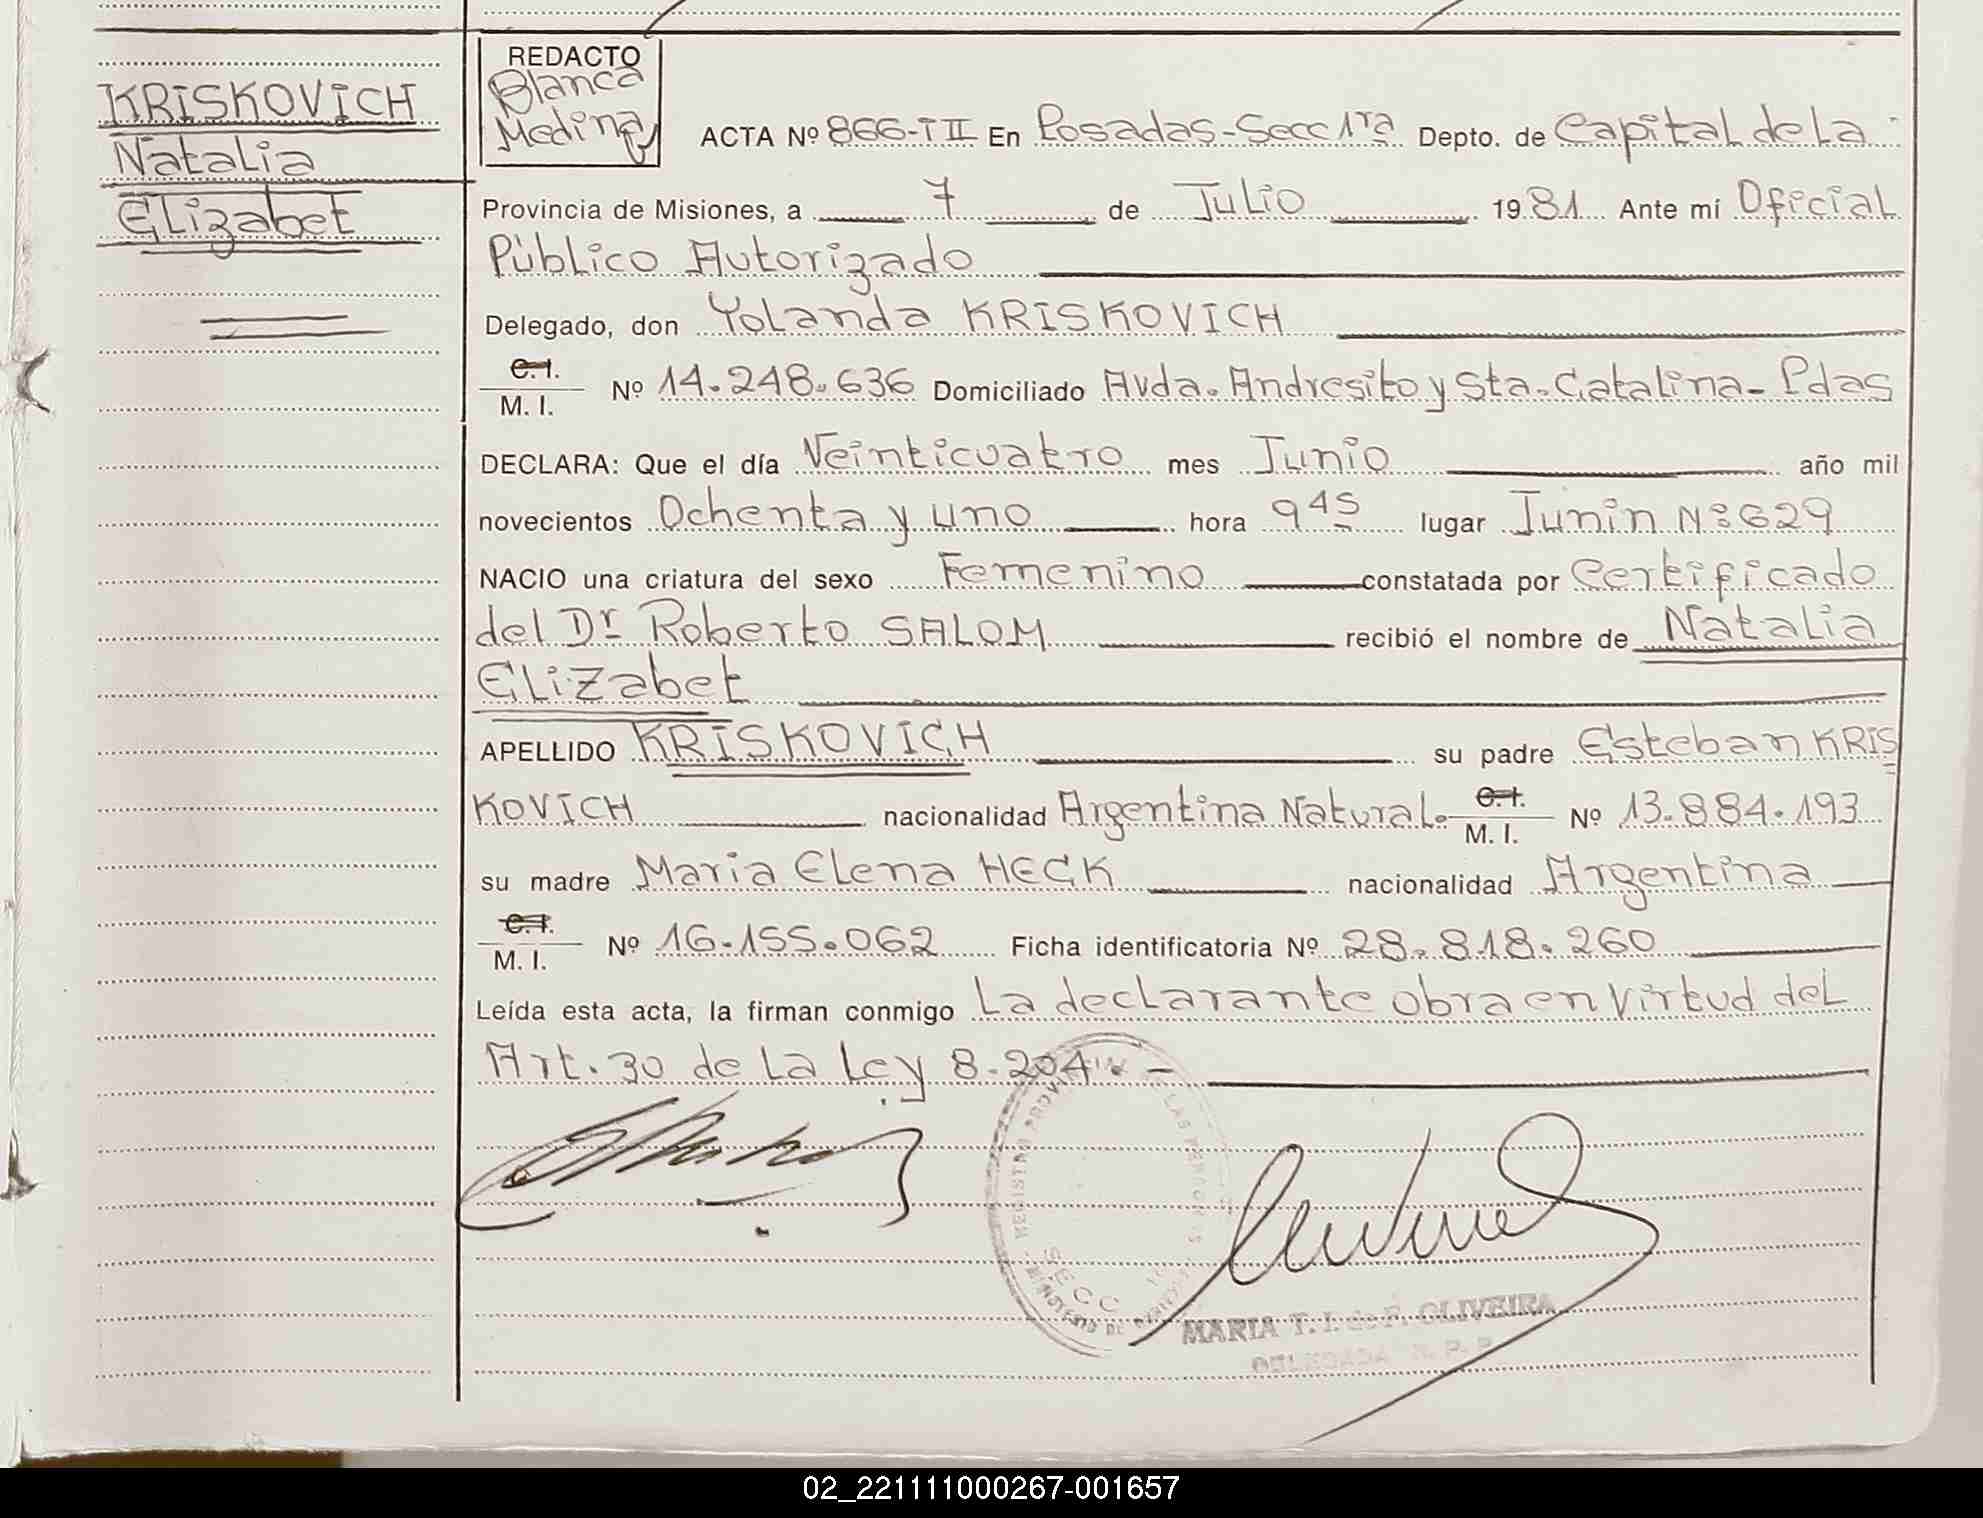 KRISKOVICH
Natalia
Elizabet
REDACTO
Blanca
Medina
ACTA Nº 866-TII En Posadas-Secc 1ra Depto. de Capital de La
Provincia de Misiones, a 7 de Julio 1981 Ante mí Oficial
Público Autorizado
Delegado, don Yolanda KRISKOVICH
C.I.
M. I. Nº 14.248.636 Domiciliado Avda. Andresito y Sta. Catalina - Pdas
DECLARA: Que el día Veinticuatro mes Junio año mil
novecientos Ochenta y uno hora 9 45 lugar Junin Nº 629
NACIO una criatura del sexo Femenino constatada por Certificado
del Dr Roberto SALOM recibió el nombre de Natalia
Elizabet
APELLIDO KRISKOVICH su padre Esteban KRIS
KOVICH nacionalidad Argentina Natural. C.I. M. I. Nº 13.884.193
su madre Maria Elena HECK nacionalidad Argentina
C.I.
M. I. Nº 16.155.062 Ficha identificatoria Nº 28.818.260
Leída esta acta, la firman conmigo La declarante obra en virtud del
Art. 30 de La Ley 8.204. -
SECC
MARIA T. I. de F. OLIVEIRA
DELEGADA R. P. P.
02_221111000267-001657